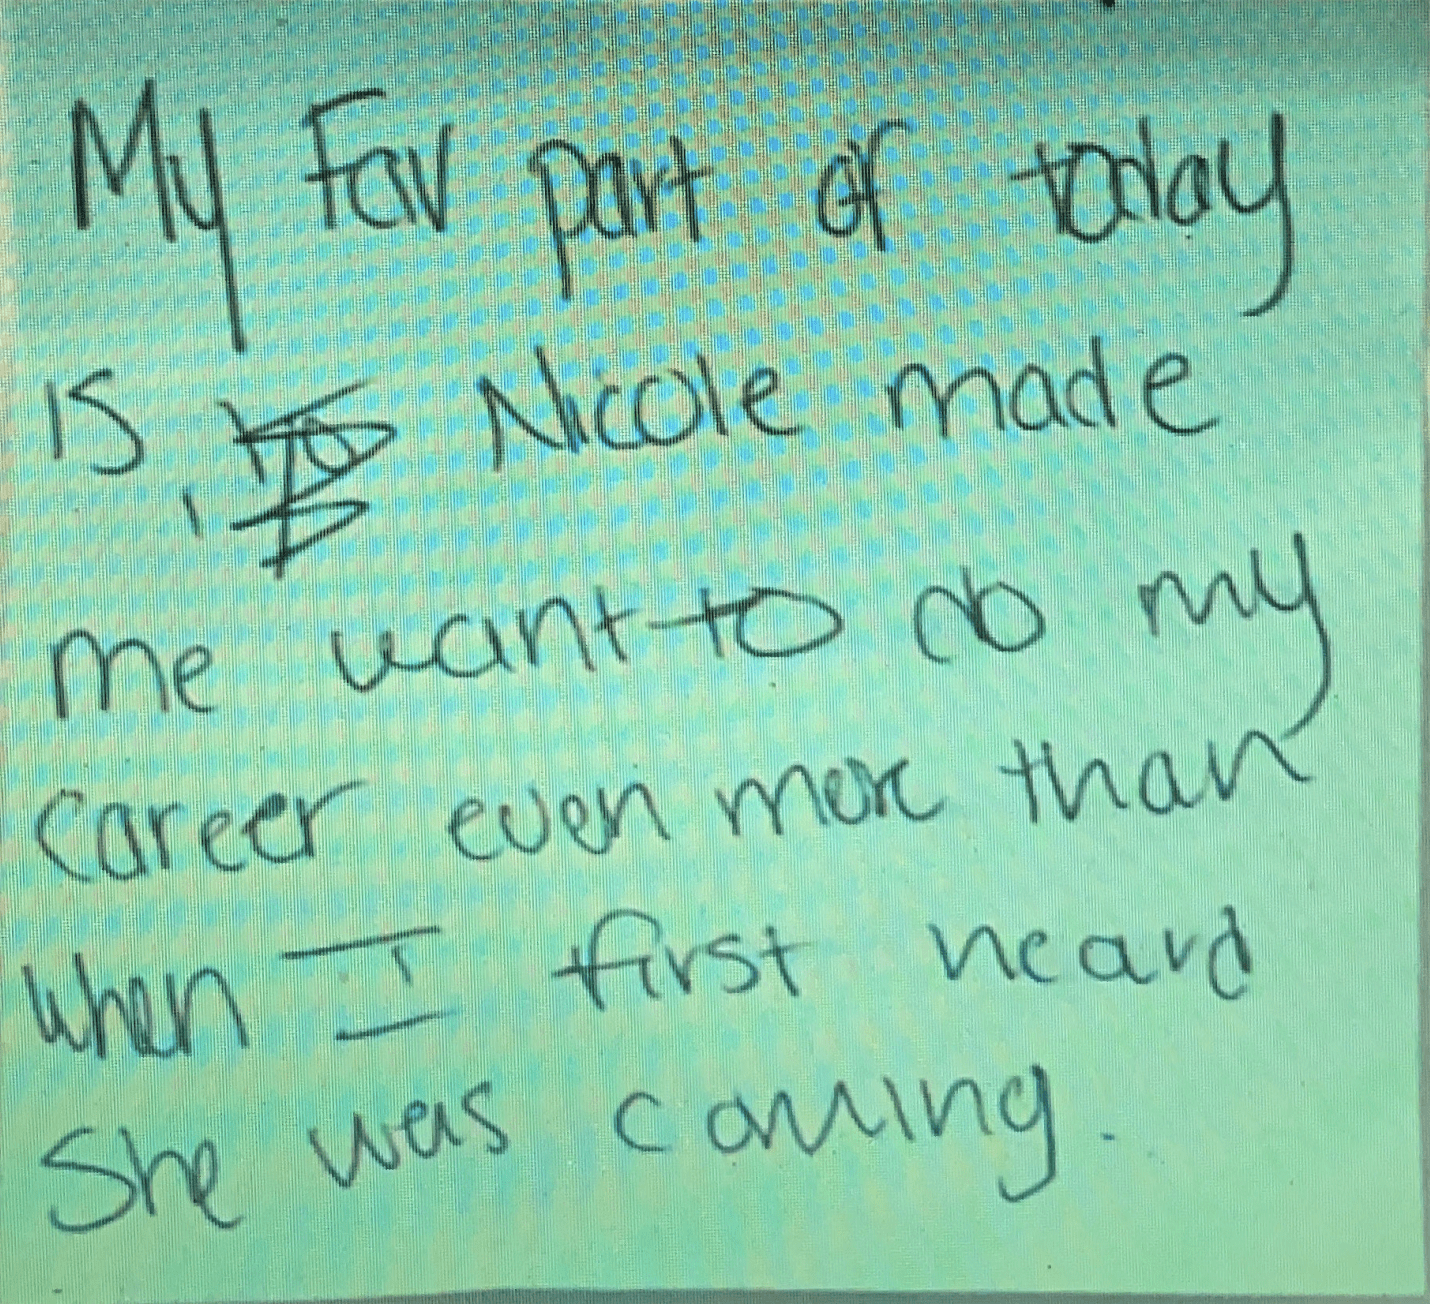 My Fav part of today
is Nicole made
me want to do my
career even more than
when I first heard
She was coming.